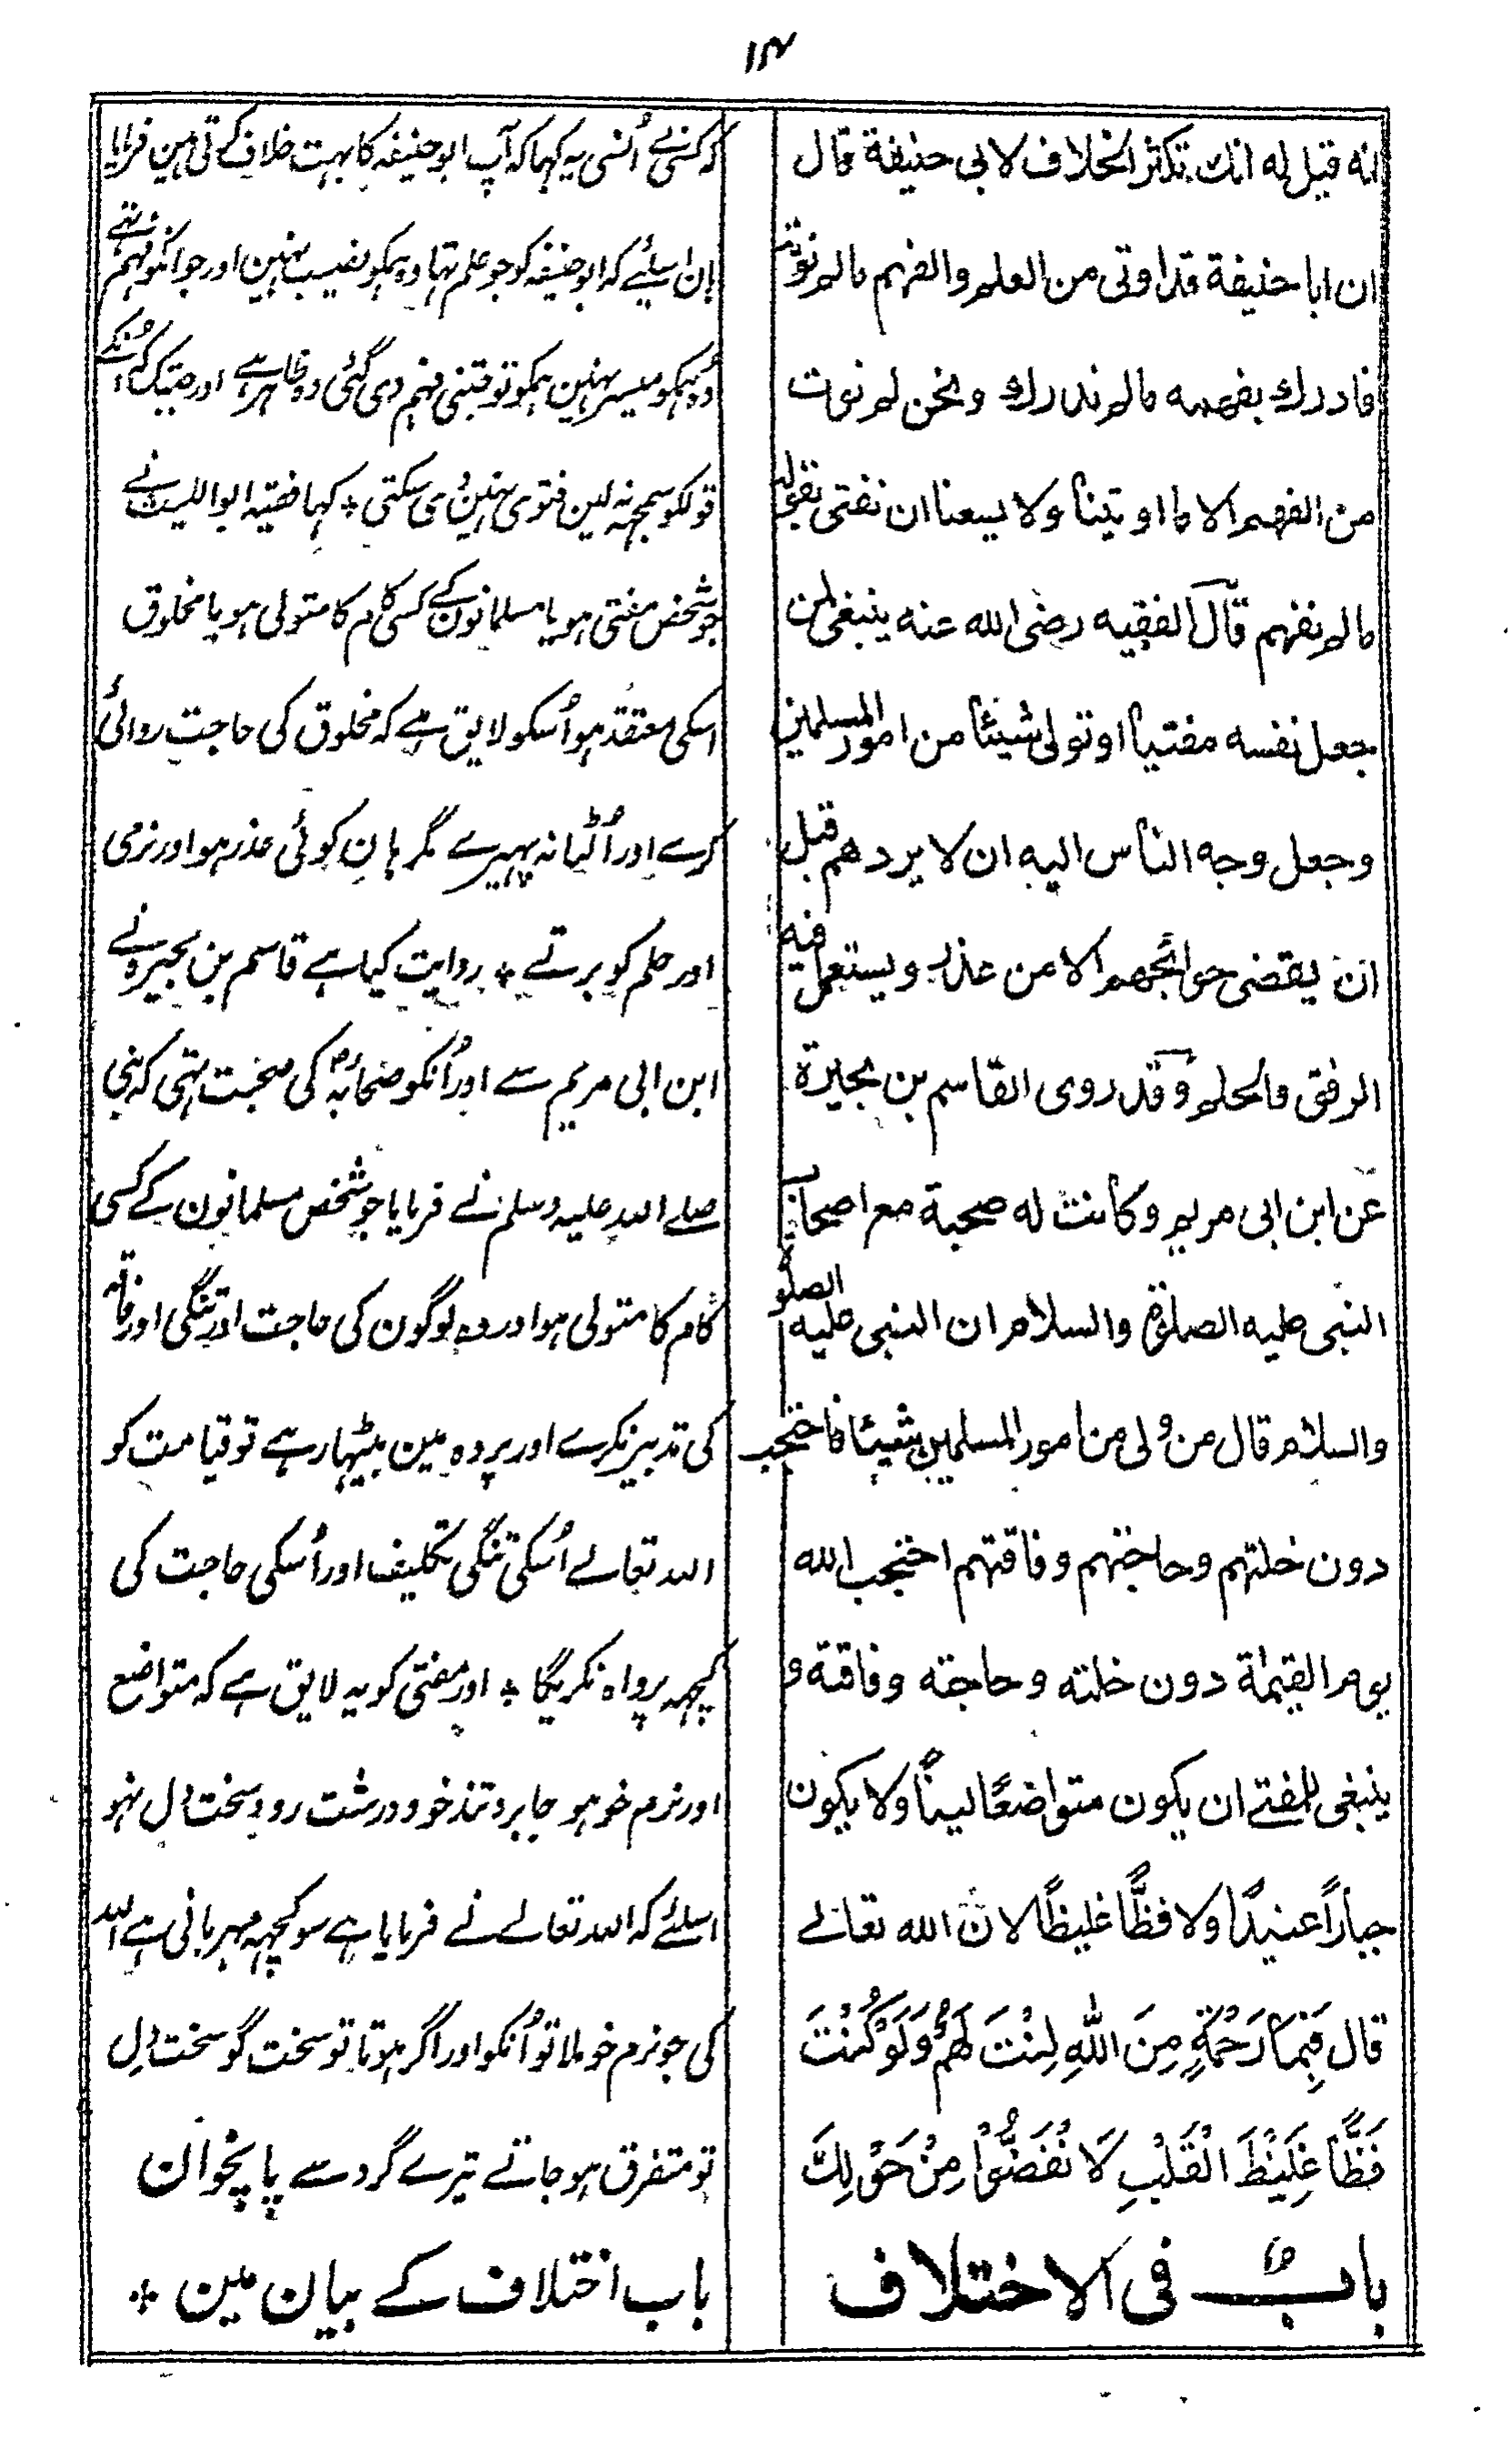 ۱۴
انه قيل له انك تكثر الخلاف لابى حنيفة قال
ان ابا حنيفة قد اوتى من العلم والفهم مالم نوت
فادرك بفهمه مالم ندرك ونحن لم نوت
من الفهم الا ما اوتينا ولا يسعنا ان نفتى بقوله
مالم نفهم قال الفقيه رضى الله عنه ينبغى لمن
جعل نفسه مفتيا او تولى شيئا من امور المسلمين
وجعل وجه الناس اليه ان لا يردهم قبل
ان يقضى حوائجهم الا من عذر ويستعمل فيه
الرفق والحلم وقد روى القاسم بن بجيرة
عن ابن ابى مريم وكانت له صحبة مع اصحاب
النبى عليه الصلوة والسلام ان النبى عليه الصلوة
والسلام قال من ولى من امور المسلمين شيئا فاحتجب
دون خلتهم وحاجتهم وفاقتهم احتجب الله
يوم القيمة دون خلته وحاجته وفاقته و
ينبغى للمفتے ان يكون متواضعًا لينًا ولا يكون
جبارًا عنيدًا ولا فظًّا غليظًا لان الله تعالے
قال فَبِمَا رَحْمَةٍ مِنَ اللهِ لِنْتَ لَهُمْ وَلَوْ كُنْتَ
فَظًّا غَلِيْظَ الْقَلْبِ لَا نْفَضُّوْا مِنْ حَوْلِكَ
باب فى الاختلاف
کہ کسنے اُنسی یہ کہا کہ آپ ابوحنیفہ کا بہت خلاف کرتی ہین فرمایا
ہان اسلیئے کہ ابوحنیفہ کو جو علم تہا وہ ہمکو نصیب نہین اور جو انکو فہم تہی
وہ ہمکو میسر نہین ہمکو تو جتنی فہم دی گئی وہ ظاہر ہے اور جبتک کہ اُنکے
قولکو سمجہہ نہ لین فتوی نہین دی سکتی ٭ کہا فقیہ ابواللیث نے
جو شخص مفتی ہو یا مسلمانون کے کسی کام کا متولی ہو یا مخلوق
اسکی معتقد ہو اُسکو لایق ہے کہ مخلوق کی حاجت روائی
کرے اور اُلٹا نہ پہیرے مگر ہان کوئی عذر ہو اور نرمی
اور حلم کو برتے ٭ روایت کیا ہے قاسم بن بجیرہ نے
ابن ابی مریم سے اور اُنکو صحابہؓ کی صحبت تہی کہ نبی
صلے اللہ علیہ وسلم نے فرمایا جو شخص مسلمانون کے کسی
کام کا متولی ہو اور وہ لوگون کی حاجت اور تنگی اور فاقہ
کی تدبیر نکرے اور پردہ مین بیٹہا رہے تو قیامت کو
اللہ تعالے اُسکی تنگی تکلیف اور اُسکی حاجت کی
کچہہ پرواہ نکریگا ٭ اور مفتی کو یہ لایق ہے کہ متواضع
اور نرم خو ہو جابر و تند خو و درشت رو و سخت دل نہو
اسلئے کہ اللہ تعالے نے فرمایا ہے سو کچہہ مہربانی ہے اللہ
کی جو نرم خو ملا تو اُنکو اور اگر ہوتا تو سخت گو سخت دِل
تو متفرق ہو جاتے تیرے گرد سے پانچوان
باب اختلاف کے بیان مین ٭